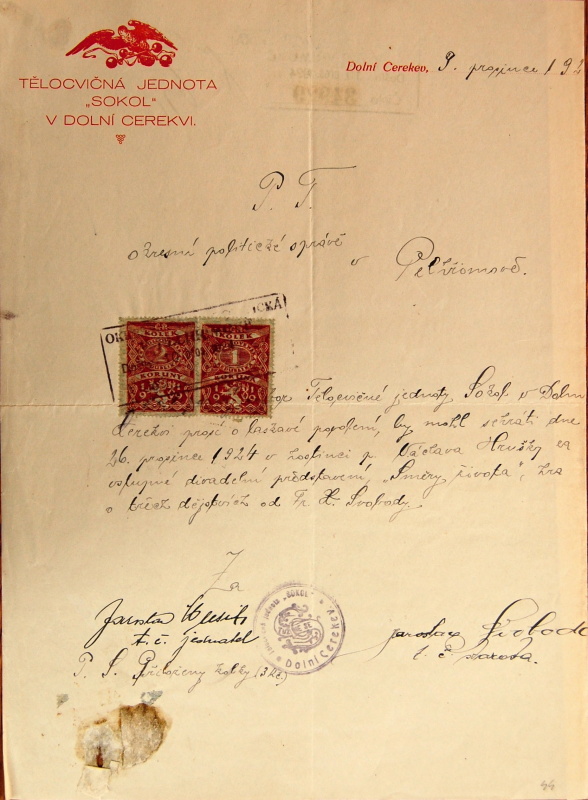 TĚLOCVIČNÁ JEDNOTA
„SOKOL"
V DOLNÍ CERKVI.
Dolní Cerekev, 9. prosince 192
P. T.
okresní politické správě
v Pelhřimově.
KOLEK KOLEK
2 1
KORUNY
Telocvičné jednoty Sokol v Dolní
Cerekvi prosí o laskavé povolení, by mohl sehráti dne
26. prosince 1924 v hostinci p. Václava Hrušky za
vstupné divadelní představení, „Směry života", hra
o třech dějstvích od Fr. X. Svobody.
Za
Jaroslav
t. č. jednatel
Jaroslav Svoboda
t. č. starosta.
"SOKOL" Dolní Cerekev
P. S. Přiloženy kolky (3 Kč.)
44